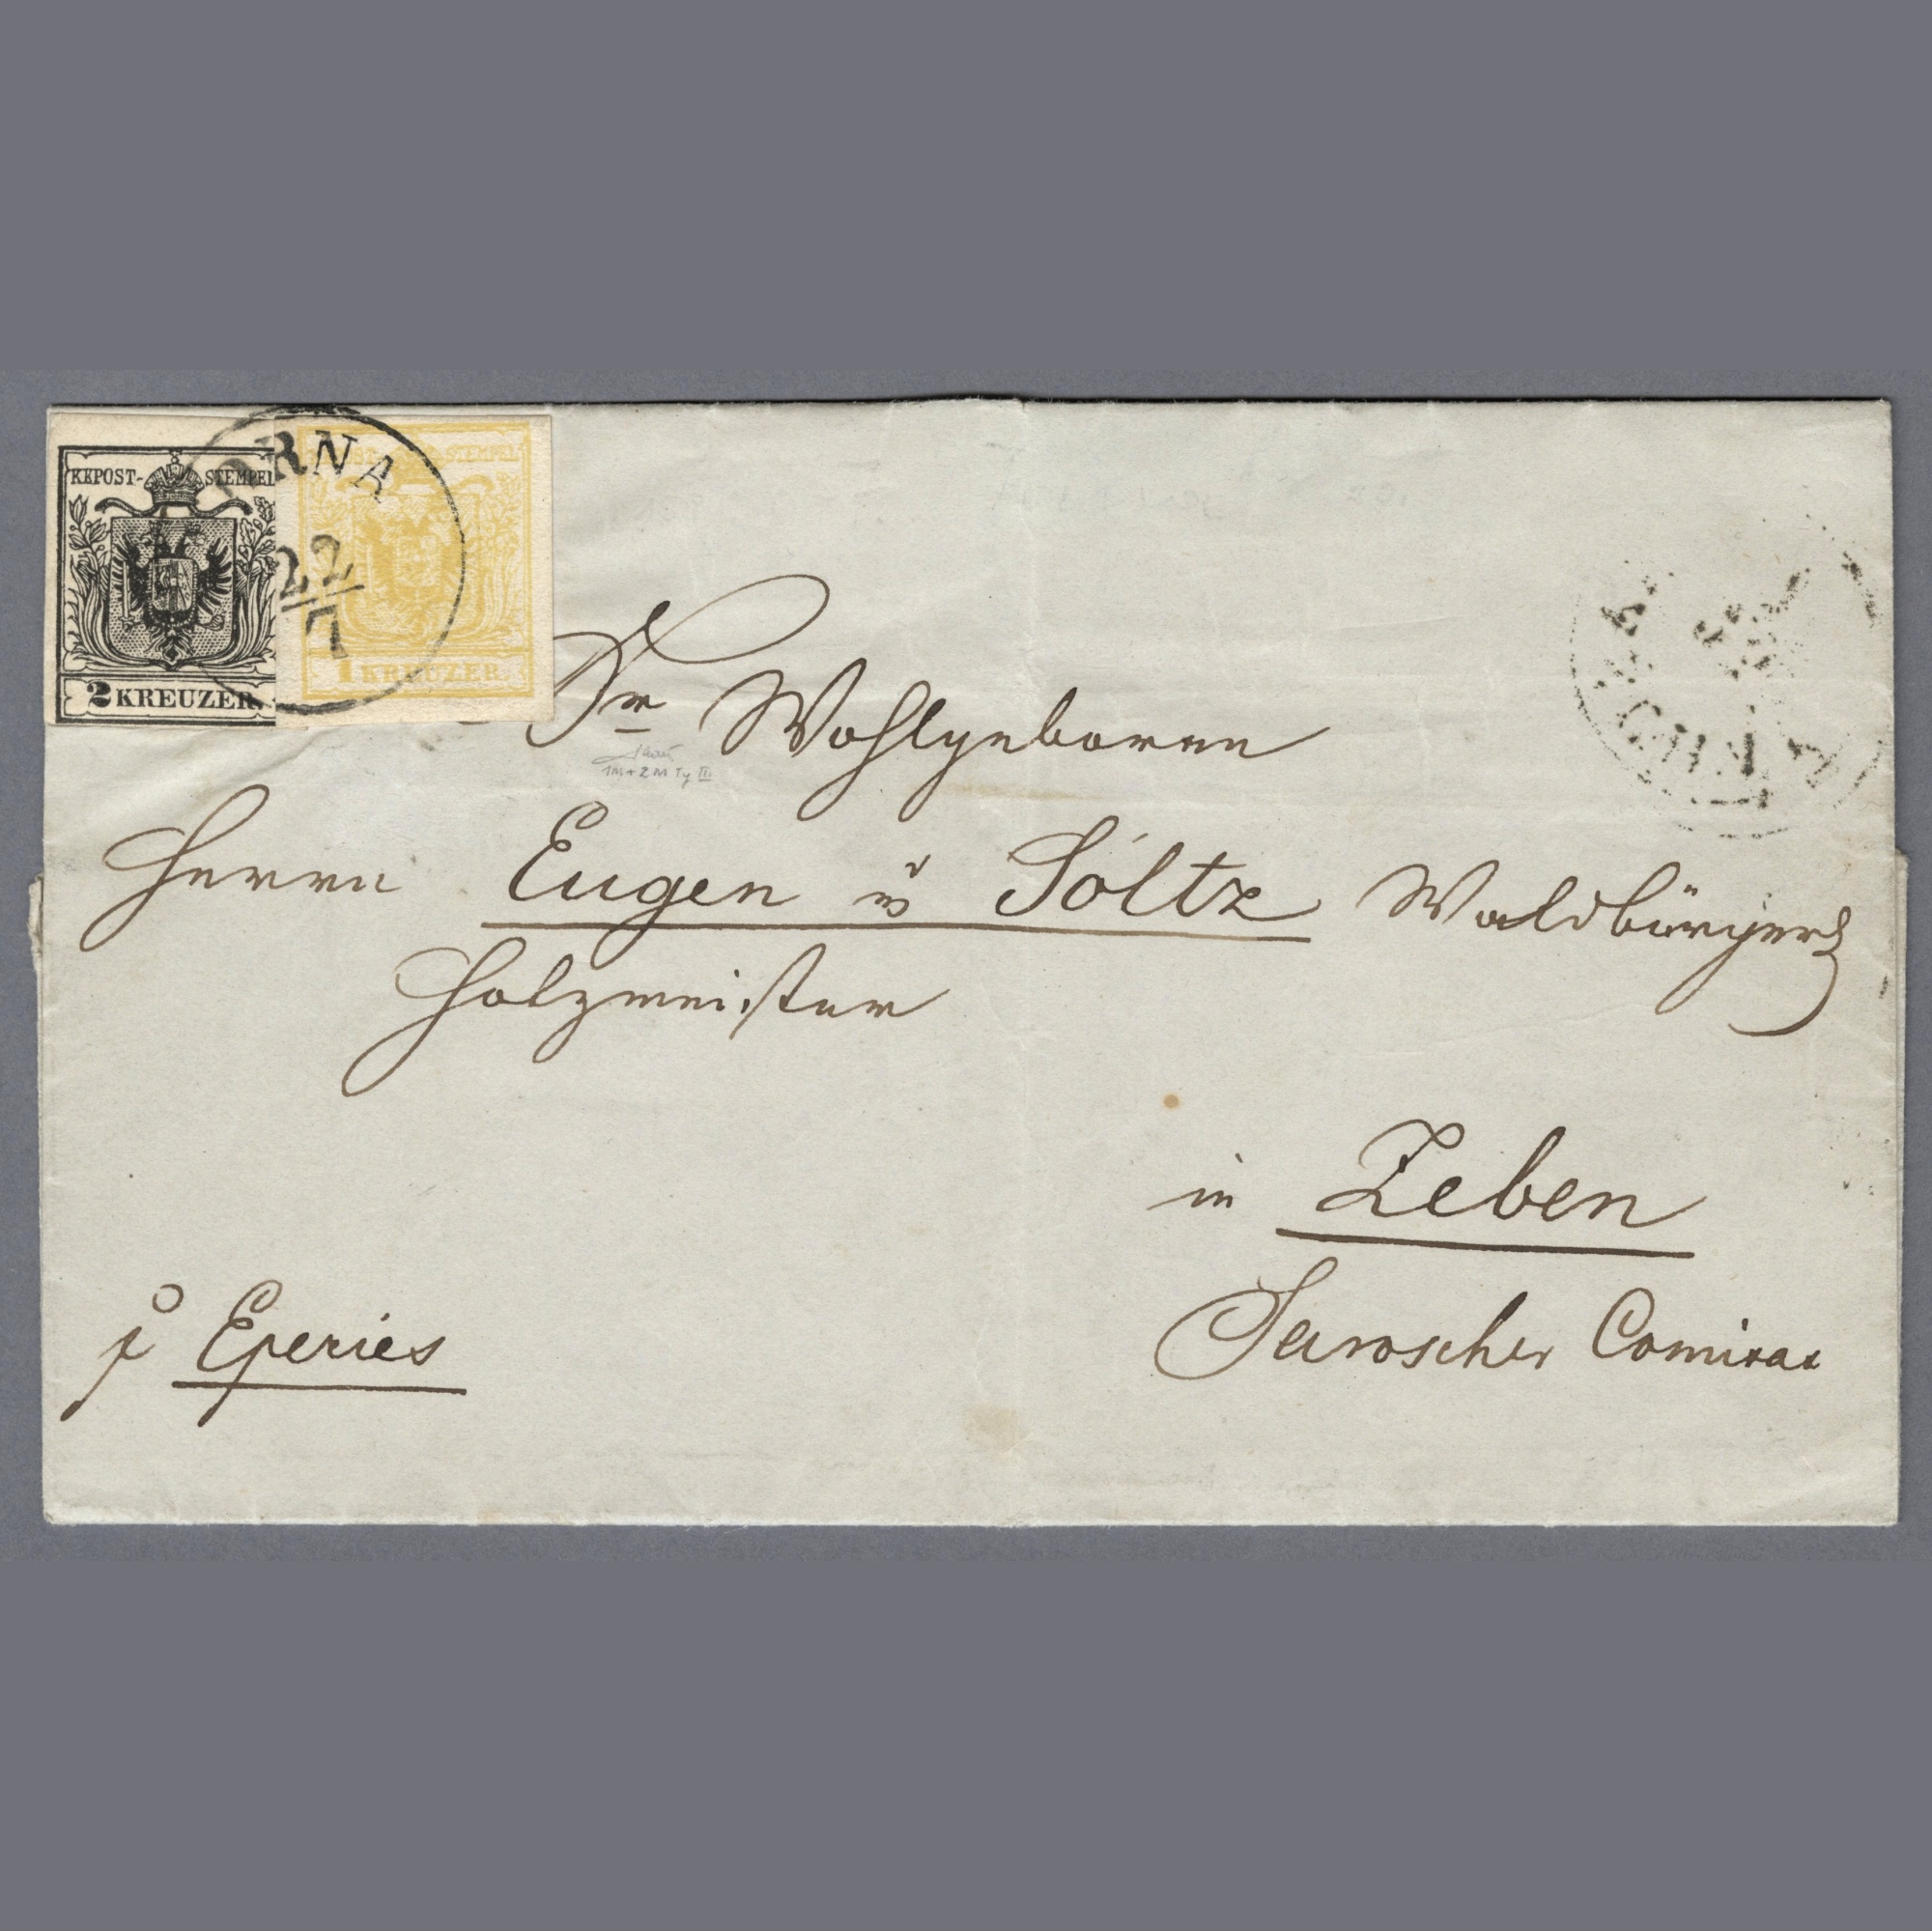 KKPOST-STEMPEL
2 KREUZER.
POST-STEMPEL
1 KREUZER.
ORNA
22/7
Sr Wohlgeboren
1M+2M Ty III
Herrn Eugen v Soltz Waldbürger
Holzmeister
in Zeben
Saroscher Comitat
p Eperies